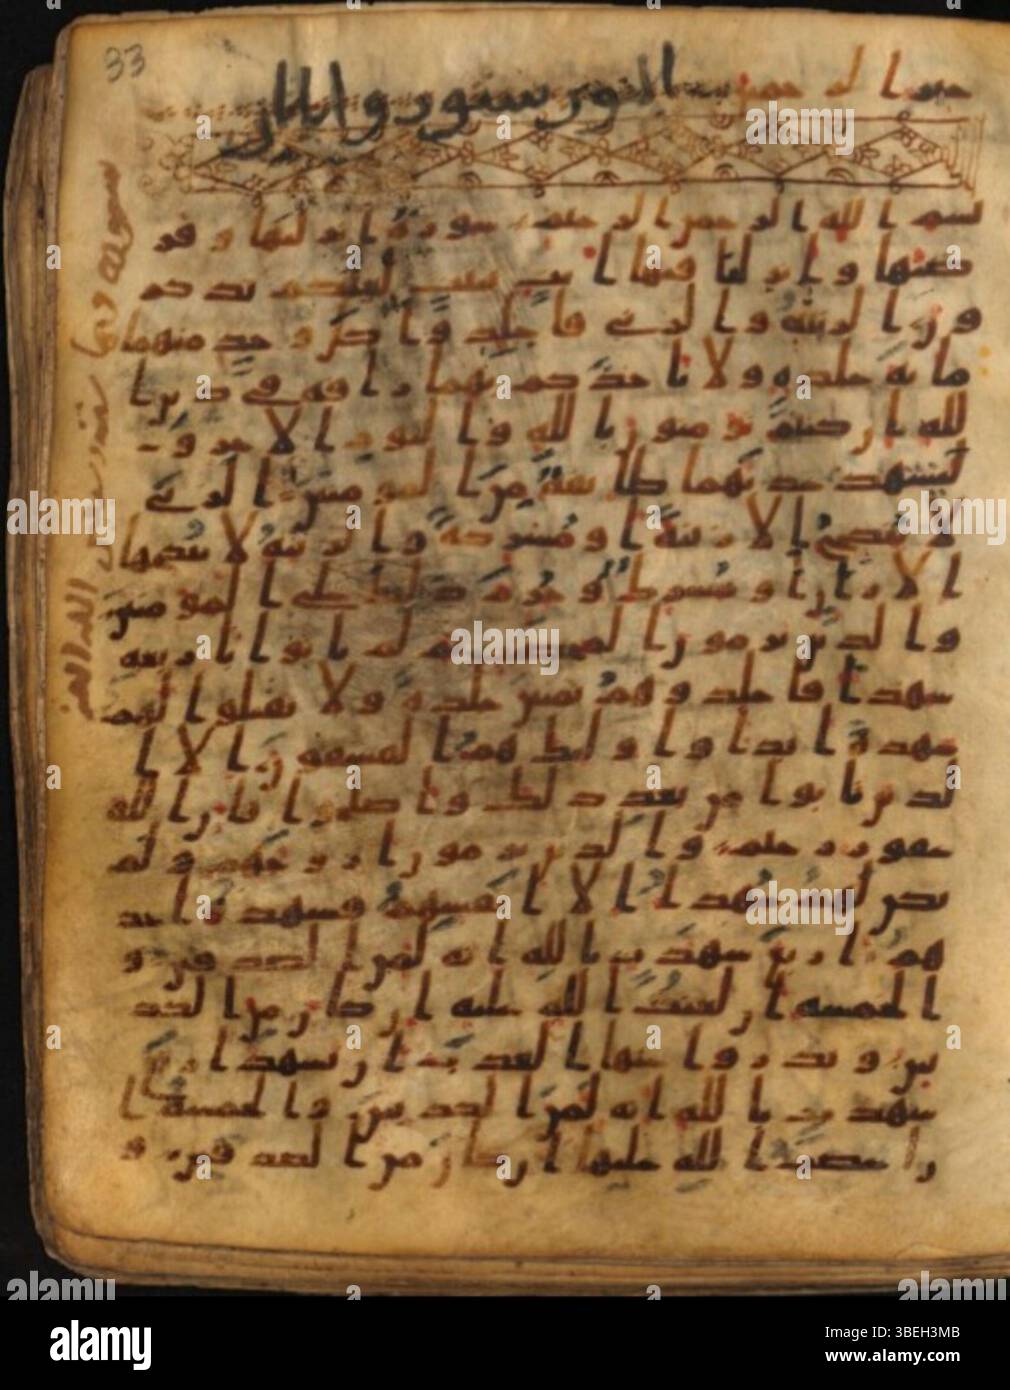 33
خير الرحمين
بسم الله الرحمن الرحيم سورة انزلنها و فر
ضنها و انزلنا فيها ايت بينت لعلكم تذكر
و ن الزنية و الزني فاجلدوا كل وحد منهما
مائة جلدة و لا تاخذكم بهما رافة في دين ا
لله ان كنتم تومنون بالله و اليوم الاخر و
ليشهد عذبهما طائفة من المومنين الزني
لا ينكح الا زنية او مشركة و الزنية لا ينكحها
الا زان او مشرك و حرم ذلك على المومنين
و الذين يرمون المحصنت ثم لم ياتوا باربعة
شهدا فاجلدوهم ثمنين جلدة و لا تقبلوا لهم
شهدة ابدا و اولئك هم الفسقون الا ا
لذين تابوا من بعد ذلك و اصلحوا فان الله
غفور رحيم و الذين يرمون ازوجهم و لم
يكن لهم شهدا الا انفسهم فشهدة احد
هم اربع شهدت بالله انه لمن الصدقين و
الخمسة ان لعنت الله عليه ان كان من الكذ
بين و يدروا عنها العذب ان تشهد اربع
شهدت بالله انه لمن الكذبين و الخمسة ا
ن غضب الله عليها ان كان من الصدقين و
alamy
Image ID: 3BEH3MB
www.alamy.com